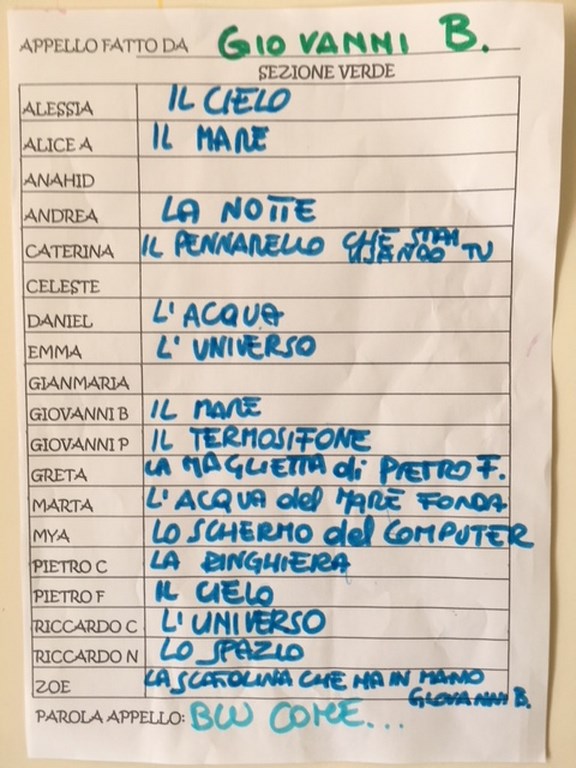 APPELLO FATTO DA GIOVANNI B.
SEZIONE VERDE
ALESSIA IL CIELO
ALICE A IL MARE
ANAHID
ANDREA LA NOTTE
CATERINA IL PENNARELLO CHE STAI USANDO TU
CELESTE
DANIEL L'ACQUA
EMMA L'UNIVERSO
GIANMARIA
GIOVANNI B IL MARE
GIOVANNI P IL TERMOSIFONE
GRETA LA MAGLIETTA di PIETRO F.
MARTA L'ACQUA del MARE FONDA
MYA LO SCHERMO del COMPUTER
PIETRO C LA RINGHIERA
PIETRO F IL CIELO
RICCARDO C L'UNIVERSO
RICCARDO N LO SPAZIO
ZOE LA SCATOLINA CHE HA IN MANO
GIOVANNI B.
PAROLA APPELLO: BLU COME...